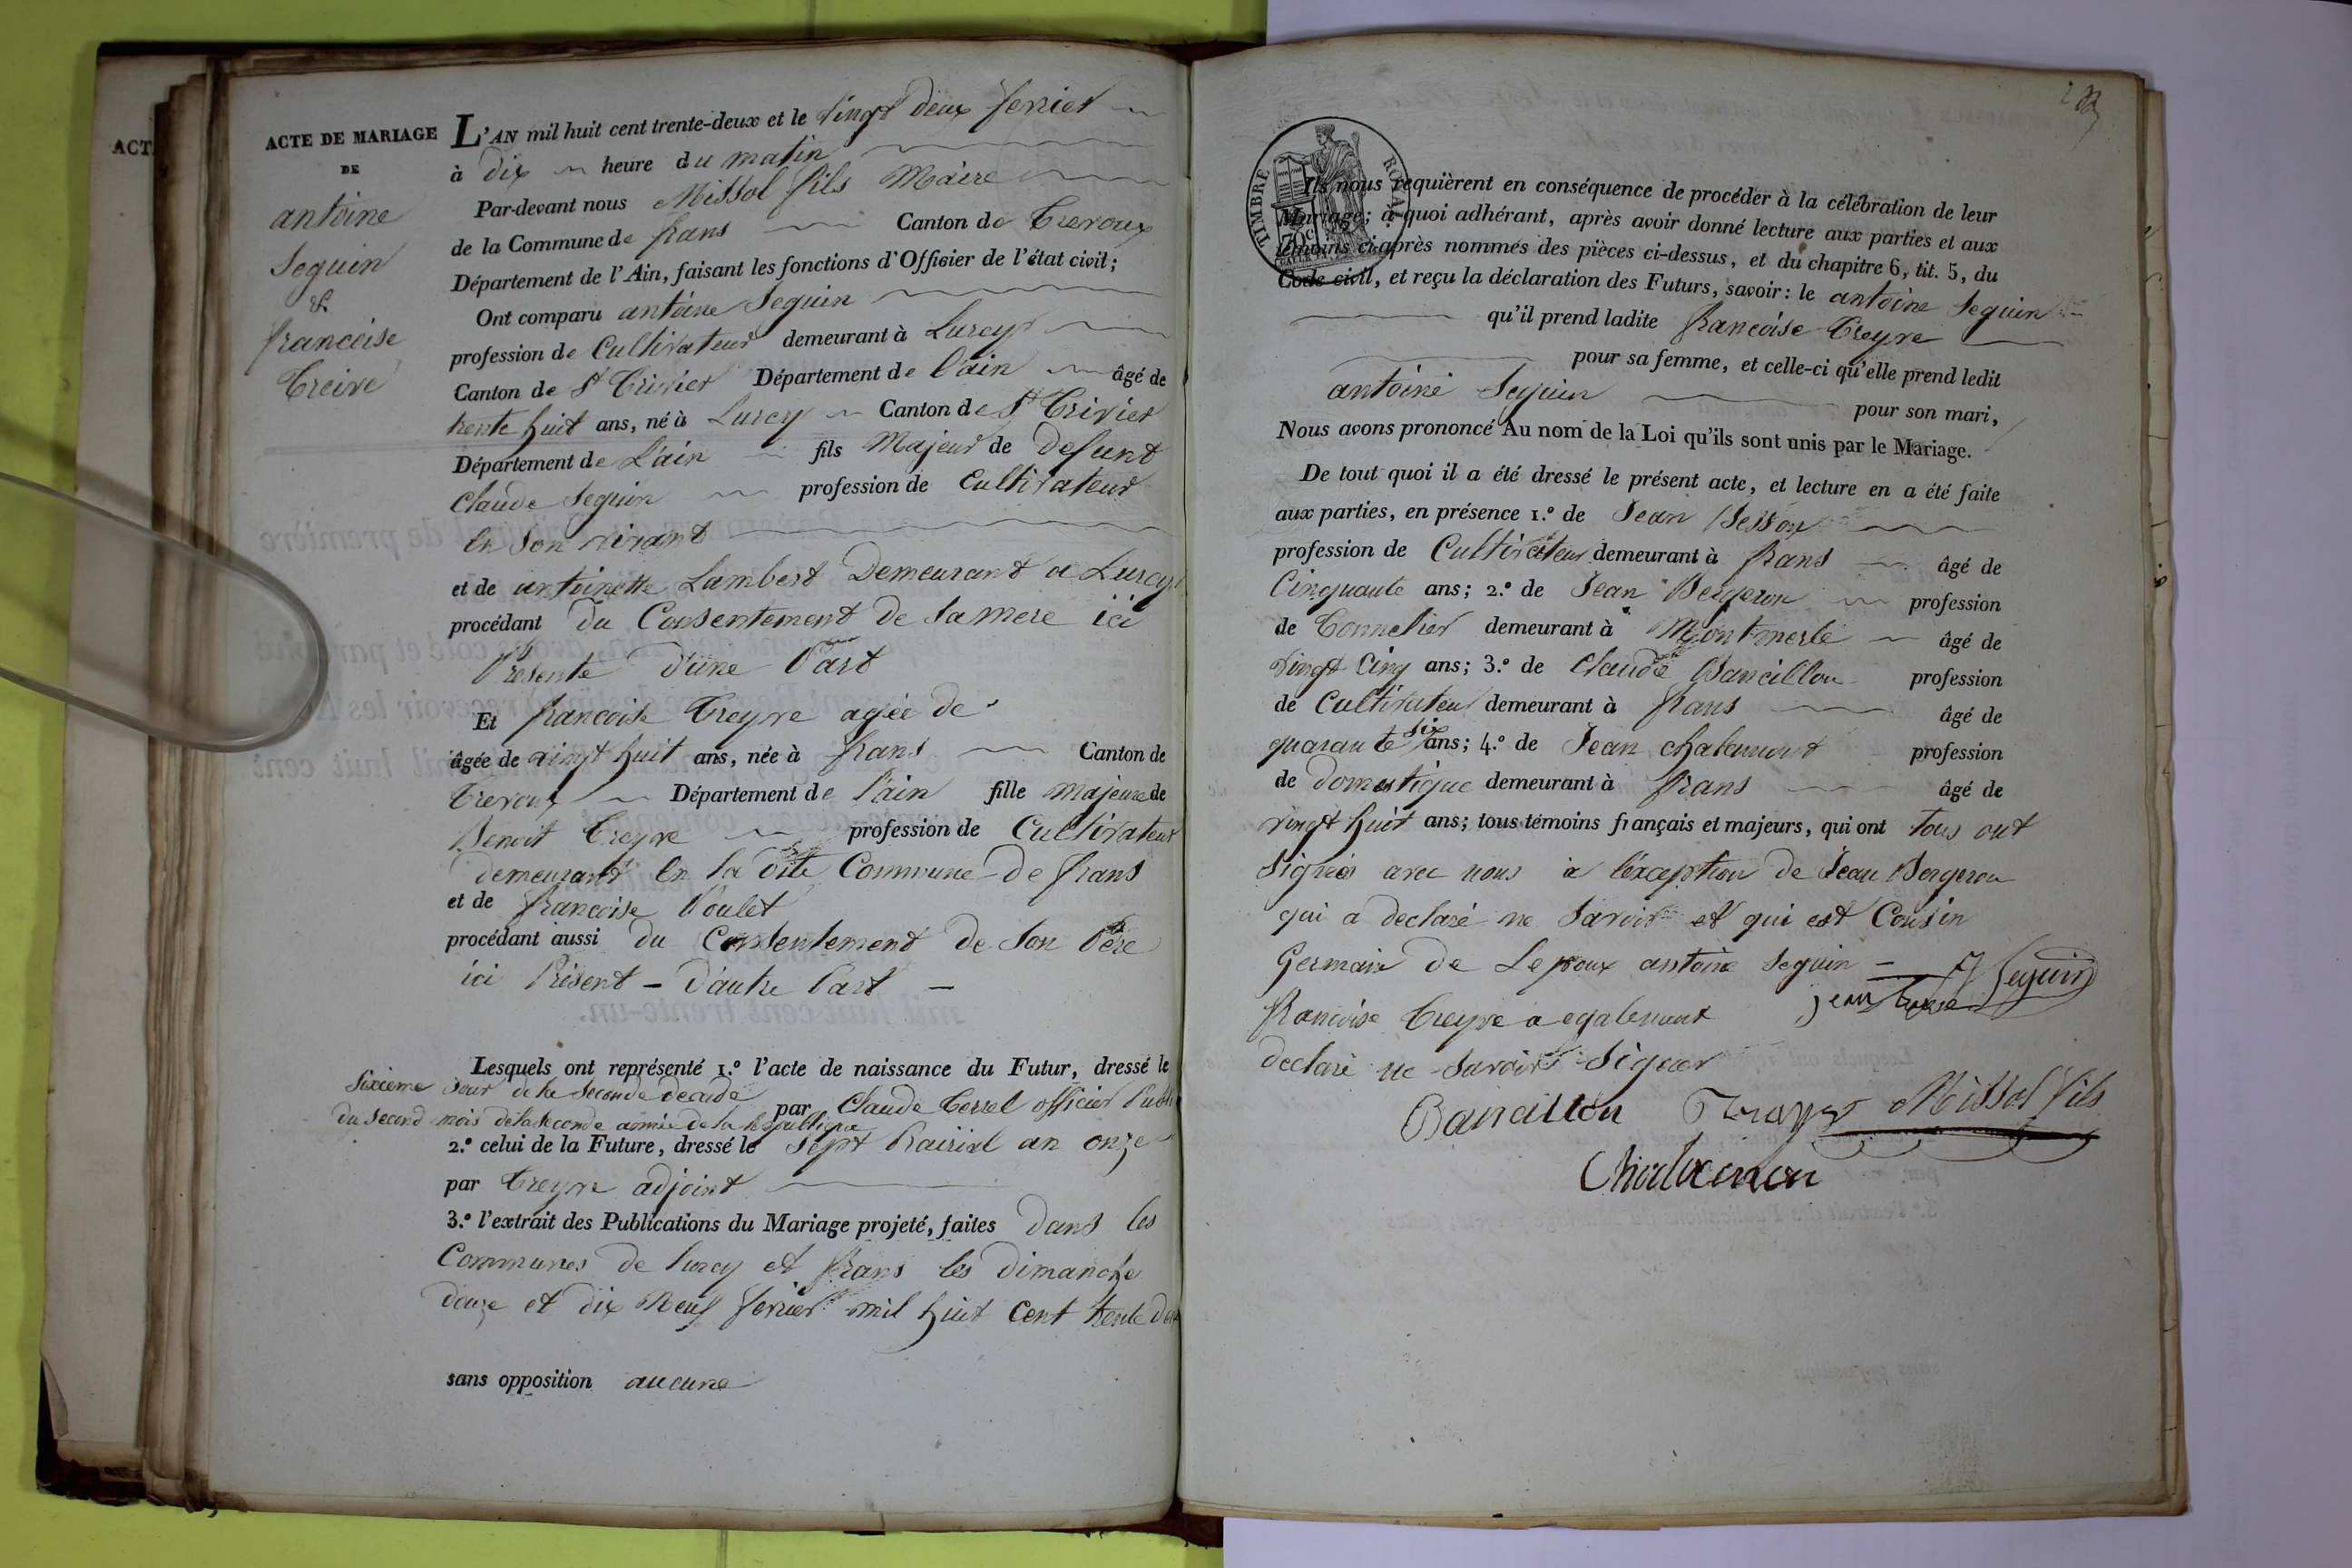 ACT
ACTE DE MARIAGE
DE
antoine
Seguin
&
francoise
Treive
L'AN mil huit cent trente-deux et le vingt deux fevrier
à dix heure du matin
Par-devant nous Missol fils Maire
de la Commune de frans Canton de Trevoux
Département de l'Ain, faisant les fonctions d'Officier de l'état civil;
Ont comparu antoine Seguin
profession de Cultivateur demeurant à Lurcy
Canton de St Trivier Département de l'ain âgé de
trente huit ans, né à Lurcy Canton de St Trivier
Département de L'ain fils Majeur de defunt
Claude Seguin profession de Cultivateur
en son vivant
et de antoinette Lambert Demeurant a Lurcy
procédant du Consentement de sa mere ici
Presente d'une Part
Et francoise Treyve agée de
âgée de vingt huit ans, née à frans Canton de
Trevoux Département de l'ain fille majeure de
Benoit Treyve profession de Cultivateur
demeurant en la dite Commune de frans
et de francoise Poulet
procédant aussi du Consentement de son Pere
ici Présent - D'autre Part -
Lesquels ont représenté 1.º l'acte de naissance du Futur, dressé le
Sixieme jour de la seconde decade par Claude Terrel officier Public
du second mois de la seconde année de la Republique
2.º celui de la Future, dressé le sept Prairial an onze
par Treyve adjoint
3.º l'extrait des Publications du Mariage projeté, faites dans les
Communes de Lurcy et frans les dimanche
douze et dix Neuf fevrier mil huit cent trente deux
sans opposition aucune
TIMBRE ROYAL
70c
Ils nous requièrent en conséquence de procéder à la célébration de leur
Mariage; à quoi adhérant, après avoir donné lecture aux parties et aux
témoins ci-après nommés des pièces ci-dessus, et du chapitre 6, tit. 5, du
Code civil, et reçu la déclaration des Futurs, savoir: le antoine Seguin
qu'il prend ladite francoise Treyve
pour sa femme, et celle-ci qu'elle prend ledit
antoine Seguin pour son mari,
Nous avons prononcé Au nom de la Loi qu'ils sont unis par le Mariage.
De tout quoi il a été dressé le présent acte, et lecture en a été faite
aux parties, en présence 1.º de Jean
profession de Cultivateur demeurant à frans âgé de
Cinquante ans; 2.º de Jean Bergeron profession
de Tonnelier demeurant à Montmerle âgé de
vingt Cinq ans; 3.º de Claude Bancillon profession
de Cultivateur demeurant à frans âgé de
quarante six ans; 4.º de Jean chalamont profession
de domestique demeurant à frans âgé de
vingt huit ans; tous témoins français et majeurs, qui ont tous ont
Signés avec nous a l'exception de Jean Bergeron
qui a declaré ne Savoir et qui est Cousin
Germain de Lepoux antoine Seguin -
francoise Treyve a egalement
declaré ne Savoir Signer
Seguin
jean
Missol fils